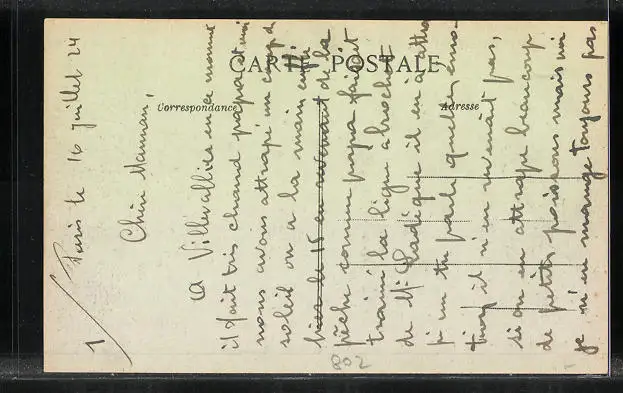 CARTE POSTALE
Correspondance
Adresse
1
Paris le 16 juillet 24
Chère Maman,
A Villevallier en ce moment
il fait très chaud papa et moi
nous avons attrapé un coup de
soleil on a la main
hier le 15 en revenant de la
pêche comme papa faisait
traîner la ligne
de M. il en
je m tu parle quelle
il n'en pas,
si on en attrape beaucoup
de petits poissons mais moi
je n'en mange toujours pas
802